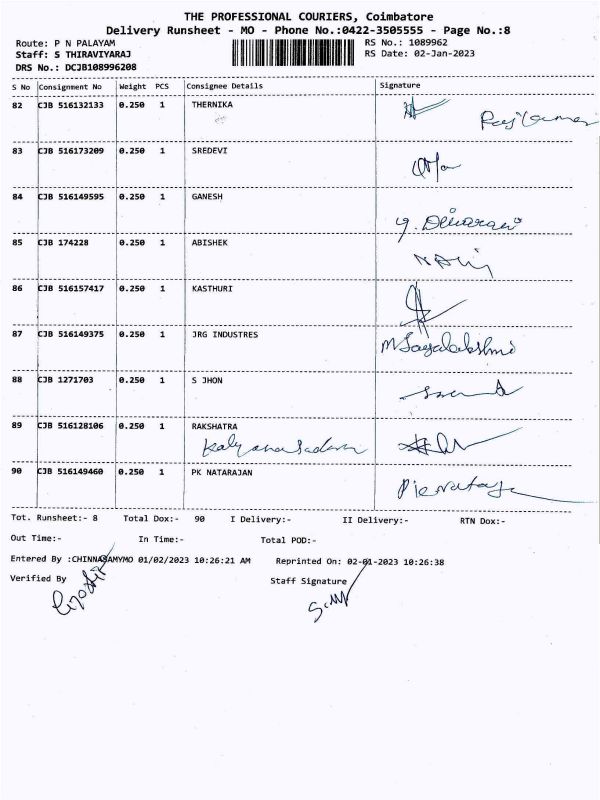 THE PROFESSIONAL COURIERS, Coimbatore
Delivery Runsheet - MO - Phone No.:0422-3505555 - Page No.:8
Route: P N PALAYAM RS No.: 1089962
Staff: S THIRAVIYARAJ RS Date: 02-Jan-2023
DRS No.: DCJB108996208
S No Consignment No Weight PCS Consignee Details Signature
82 CJB 516132133 0.250 1 THERNIKA
83 CJB 516173209 0.250 1 SREDEVI
84 CJB 516149595 0.250 1 GANESH
85 CJB 174228 0.250 1 ABISHEK
86 CJB 516157417 0.250 1 KASTHURI
87 CJB 516149375 0.250 1 JRG INDUSTRES
88 CJB 1271703 0.250 1 S JHON
89 CJB 516128106 0.250 1 RAKSHATRA
90 CJB 516149460 0.250 1 PK NATARAJAN
Tot. Runsheet:- 8 Total Dox:- 90 I Delivery:- II Delivery:- RTN Dox:-
Out Time:- In Time:- Total POD:-
Entered By :CHINNASAMYMO 01/02/2023 10:26:21 AM Reprinted On: 02-01-2023 10:26:38
Verified By Staff Signature